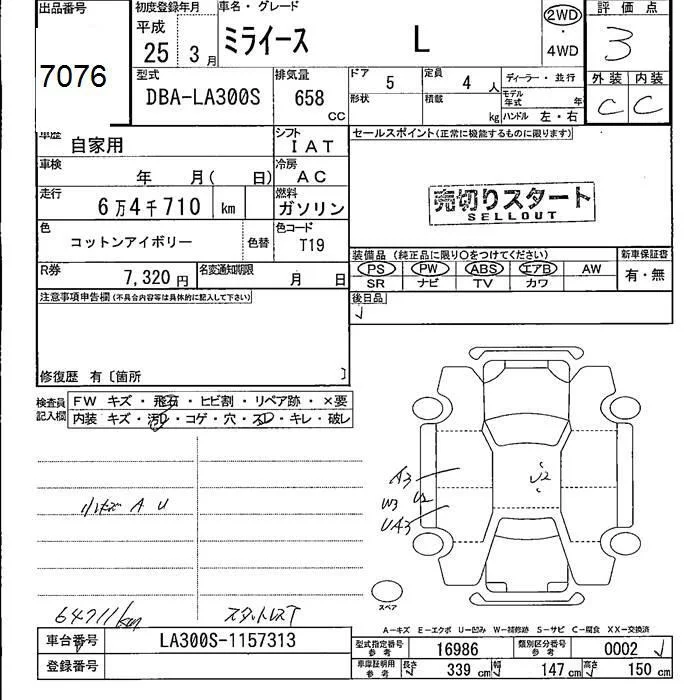 出品番号
7076
初度登録年月
平成
25 3月
車名・グレード
ミライース L
2WD
・
4WD
評価点
3
外装 内装
C C
型式
DBA-LA300S
排気量
658
CC
ドア 5
定員 4 人
形状
積載 kg
ディーラー・並行
モデル年式 年
ハンドル 左・右
車歴
自家用
シフト
I A T
車検
年 月( 日)
冷房
A C
走行
6万4千710 km
燃料
ガソリン
色
コットンアイボリー
色替
色コード
T19
R券
7,320 円
名変通知期限
月 日
セールスポイント(正常に機能するものに限ります)
売切りスタート
SELLOUT
装備品(純正品に限り○をつけてください)
新車保証書
PS PW ABS エアB AW
SR ナビ TV カワ
有・無
後日品
注意事項申告欄(不具合内容等は具体的に記入して下さい)
修復歴 有〔箇所 〕
検査員
記入欄
FW キズ・飛石・ヒビ割・リペア跡・×要
内装 キズ・汚れ・コゲ・穴・スレ・キレ・破レ
小キズ A U
A3
W3 U2
UA3
U2
64711km
スタットレスT
スペア
A-キズ E-エクボ U-凹み W-補修跡 S-サビ C-腐食 XX-交換済
車台番号
LA300S-1157313
登録番号
型式指定番号
参考
16986
類別区分番号
参考
0002
車庫証明用
参考
長さ 339 cm
幅 147 cm
高さ 150 cm